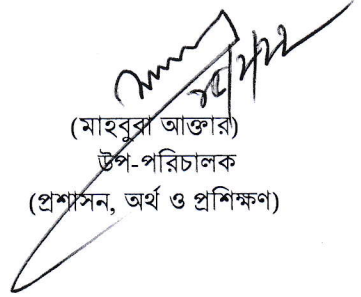 (মাহবুবা আক্তার)
উপ-পরিচালক
(প্রশাসন, অর্থ ও প্রশিক্ষণ)